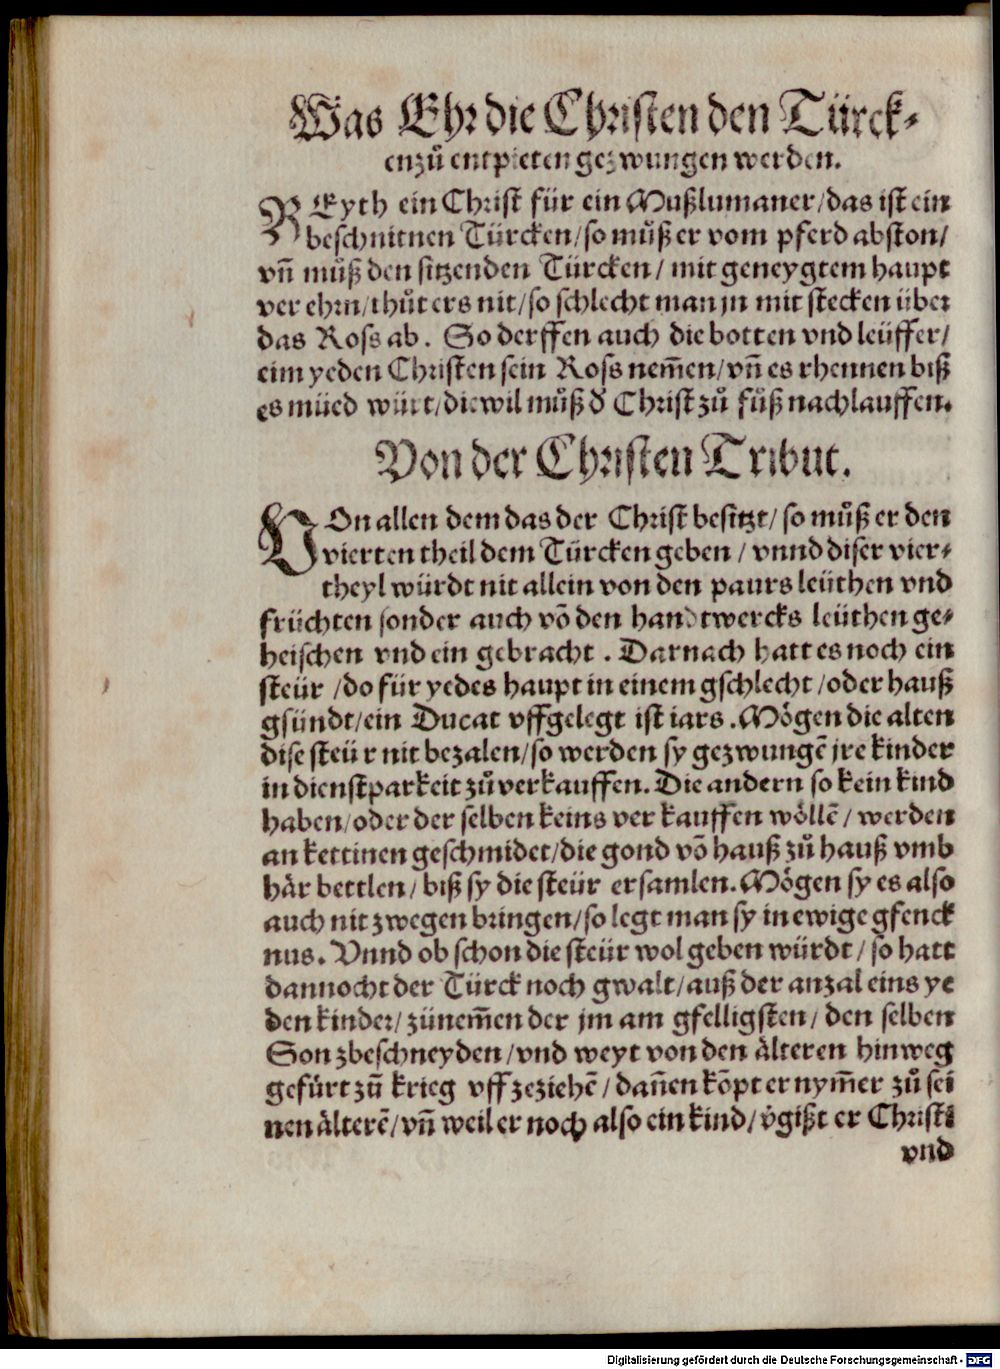 Was Ehr die Christen den Türck-
enzů entpieten gezwungen werden.
REyth ein Christ für ein Mußlumaner/das ist ein
beschnitnen Türcken/so můß er vom pferd abston/
vñ můß den sitzenden Türcken/ mit geneygtem haupt
ver ehrn/thůt ers nit/so schlecht man jn mit stecken über
das Ross ab. So derffen auch die botten vnd leüffer/
eim yeden Christen sein Ross nem̃en/vñ es rhennen biß
es müed würt/diewil můß d' Christ zů fůß nachlauffen.
Von der Christen Tribut.
VOn allen dem das der Christ besitzt/ so můß er den
vierten theil dem Türcken geben / vnnd diser vier-
theyl würdt nit allein von den paurs leüthen vnd
früchten sonder auch võ den handtwercks leüthen ge-
heischen vnd ein gebracht . Darnach hatt es noch ein
steür /do für yedes haupt in einem gschlecht /oder hauß
gsündt/ein Ducat vffgelegt ist iars .Mögen die alten
dise steür nit bezalen/so werden sy gezwungẽ jre kinder
in dienstparkeit zů verkauffen. Die andern so kein kind
haben/oder der selben keins ver kauffen wöllẽ / werden
an kettinen geschmidet/die gond võ hauß zů hauß vmb
här bettlen/ biß sy die steür ersamlen. Mögen sy es also
auch nit zwegen bringen/so legt man sy in ewige gfenck
nus. Vnnd ob schon die steür wol geben würdt / so hatt
dannocht der Türck noch gwalt/auß der anzal eins ye
den kinder/ zünem̃en der jm am gfelligsten/ den selben
Son zbeschneyden /vnd weyt von den älteren hinweg
gefürt zũ krieg vff zeziehẽ / dañen kõpt er nym̃er zů sei
nen älterẽ/vñ weil er noch also ein kind/v̉gißt er Christi
vnd
Digitalisierung gefördert durch die Deutsche Forschungsgemeinschaft - DFG